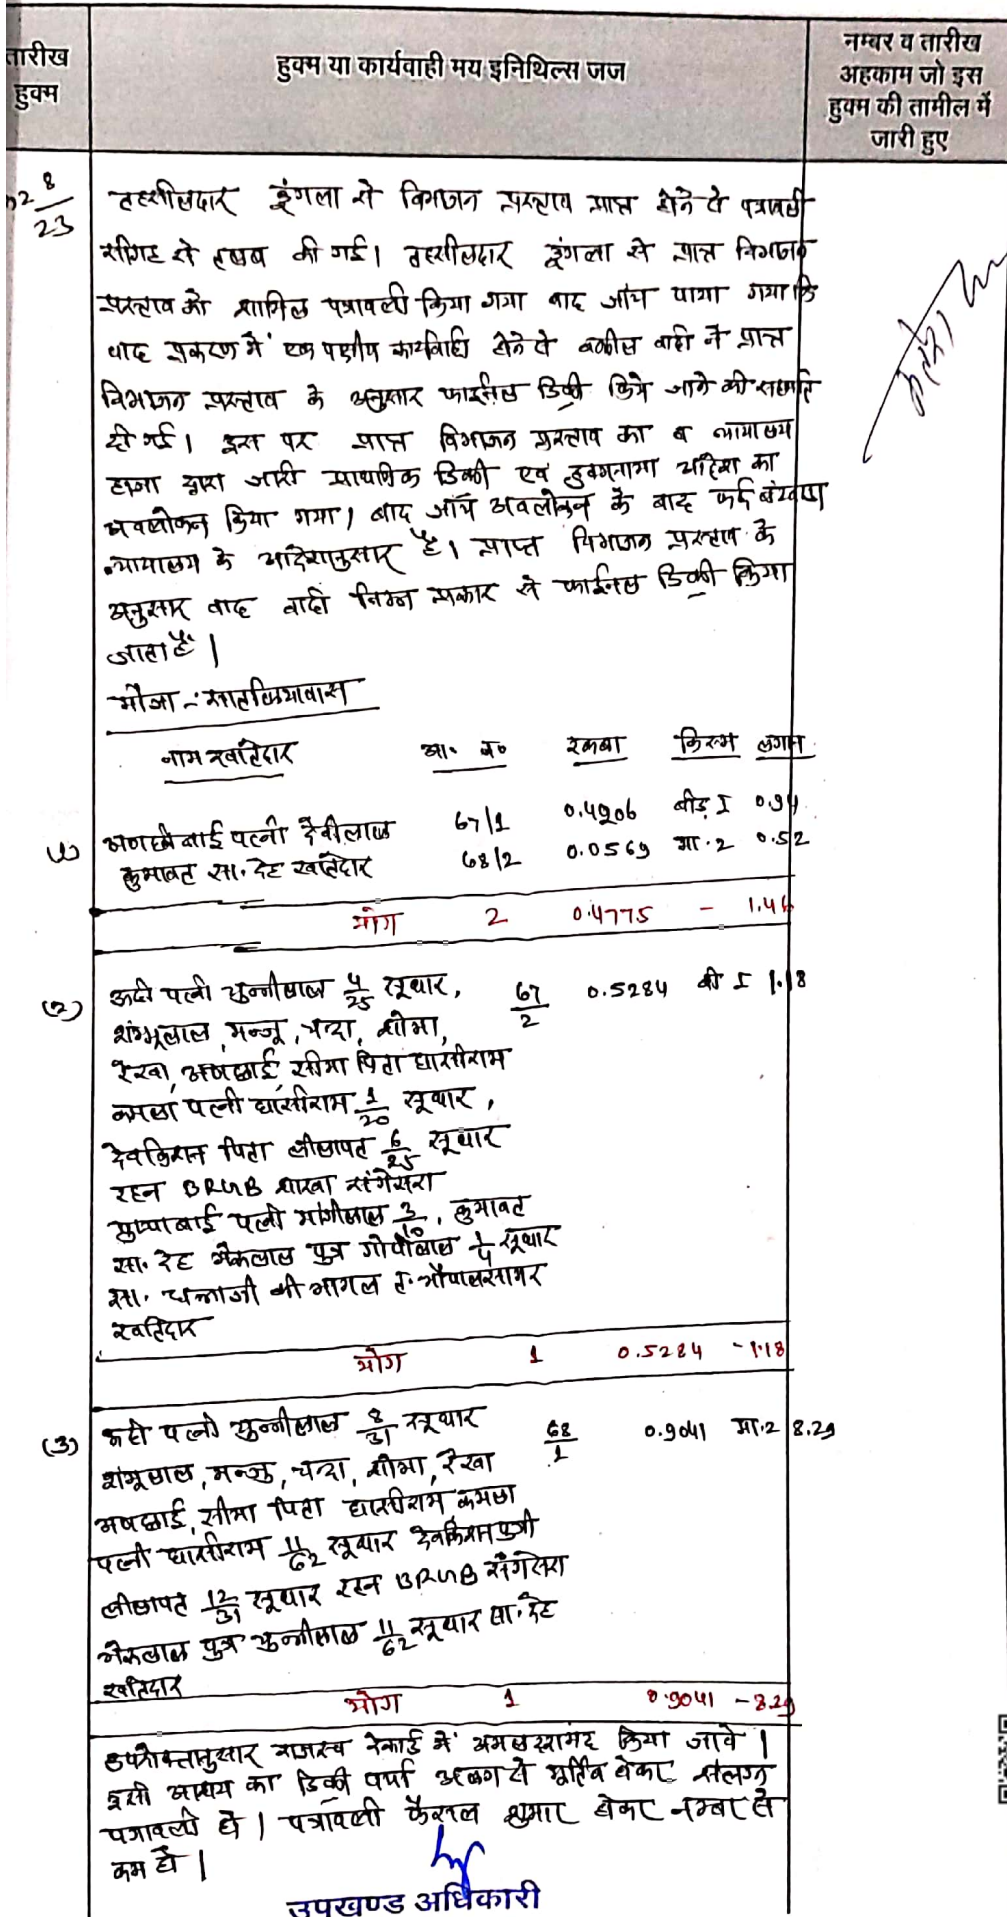 तारीख
हुक्म
हुक्म या कार्यवाही मय इनिथिल्स जज
नम्बर व तारीख
अहकाम जो इस
हुक्म की तामील में
जारी हुए
8
23
तहसीलदार डूंगला से विभाजन प्रस्ताव प्राप्त होने से पत्रावली
सीगह से तलब की गई। तहसीलदार डूंगला से प्राप्त विभाजन
प्रस्ताव को शामिल पत्रावली किया गया बाद जांच पाया गया कि
वाद प्रकरण में एक पक्षीय कार्यवाही होने से वकील वादी ने प्राप्त
विभाजन प्रस्ताव के अनुसार फाईनल डिक्री किये जाने की सहमति
दी गई। इस पर प्राप्त विभाजन प्रस्ताव का व न्यायालय
हाजा द्वारा जारी प्राथमिक डिक्री एवं हुक्मनामा आदेश का
अवलोकन किया गया। बाद जांच अवलोकन के बाद फर्द बंटवारा
न्यायालय के आदेशानुसार है। प्राप्त विभाजन प्रस्ताव के
अनुसार वाद वादी निम्न प्रकार से फाईनल डिक्री किया
जाता है।
मौजा :-
नाम खातेदार आ. न० रकबा किस्म लगान
(1) पत्नी देवीलाल 67/1 0.4206 बीड़ I 0.94
कुमावत सा. देह खातेदार 68/2 0.0569 मा.2 0.52
योग 2 0.4775 - 1.46
(2) पत्नी चुन्नीलाल 4/25 सूथार, 67/2 0.5284 बी I 1.18
शंभूलाल, मन्जू, चन्दा, शोभा,
रेखा, सीमा पिता घासीराम
कमला पत्नी घासीराम 1/20 सूथार,
देवकिशन पिता 6/25 सूथार
रहन BRGB शाखा संगेसरा
पुष्पाबाई पत्नी मांगीलाल 3/10, कुमावत
सा. देह भैरूलाल पुत्र गोपीलाल 1/4 सूथार
सा. की भागल त. भोपालसागर
खातेदार
योग 1 0.5284 - 1.18
(3) पत्नी चुन्नीलाल 8/31 सूथार 68/1 0.9041 मा.2 8.29
शंभूलाल, मन्जु, चन्दा, शोभा, रेखा
सीमा पिता घासीराम, कमला
पत्नी घासीराम 11/62 सूथार देवकिशन
12/31 सूथार रहन BRGB संगेसरा
भैरूलाल पुत्र चुन्नीलाल 11/62 सूथार सा. देह
खातेदार
योग 1 0.9041 - 8.29
उपरोक्तानुसार राजस्व रेकार्ड में अमल दरामद किया जावे।
इसी आशय का डिक्री पर्चा अलग से मुर्तिब होकर संलग्न
पत्रावली हो। पत्रावली फैसल शुमार होकर नम्बर से
कम हो।
उपखण्ड अधिकारी